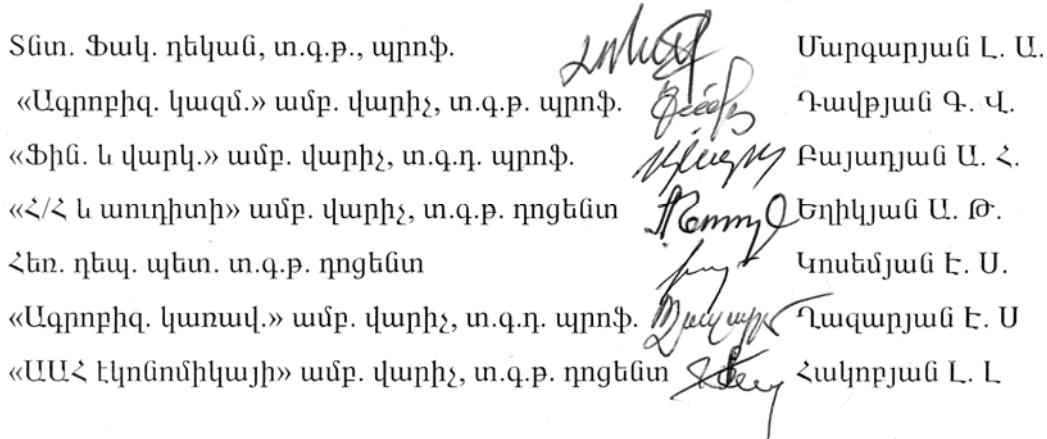 Տնտ. Ֆակ. դեկան, տ.գ.թ., պրոֆ. Մարգարյան Լ. Ա.
«Ագրոբիզ. կազմ.» ամբ. վարիչ, տ.գ.թ. պրոֆ. Դավթյան Գ. Վ.
«Ֆին. և վարկ.» ամբ. վարիչ, տ.գ.դ. պրոֆ. Բայադյան Ա. Հ.
«Հ/Հ և աուդիտի» ամբ. վարիչ, տ.գ.թ. դոցենտ Եղիկյան Ա. Թ.
Հեռ. դեպ. պետ. տ.գ.թ. դոցենտ Կոսեմյան Է. Ս.
«Ագրոբիզ. կառավ.» ամբ. վարիչ, տ.գ.դ. պրոֆ. Ղազարյան Է. Ս
«ԱԱՀ էկոնոմիկայի» ամբ. վարիչ, տ.գ.թ. դոցենտ Հակոբյան Լ. Լ